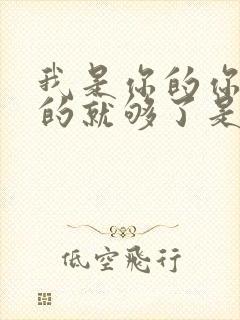 我是你的你
的就够了是
低空飛行